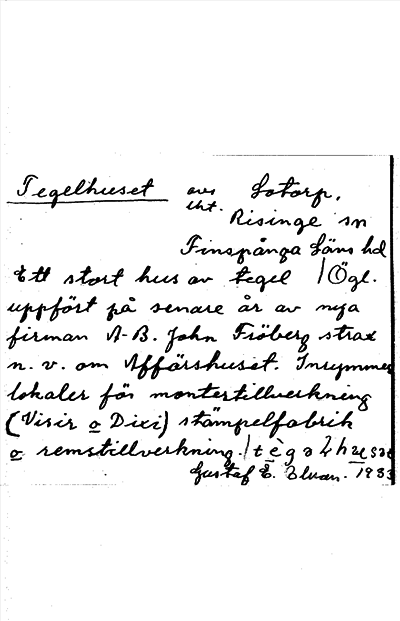 Tegelhuset avs Lotorp,
ut. Risinge sn
Finspånga Läns hd
Ett stort hus av tegel / Ögl.
uppfört på senare år av nya
firman A-B. John Fröberg strax
n. v. om Affärshuset. Inrymmer
lokaler för montertillverkning
(Visir o Dixi) stämpelfabrik
o remstillverkning. /
Gustaf E. Elvan. 1933